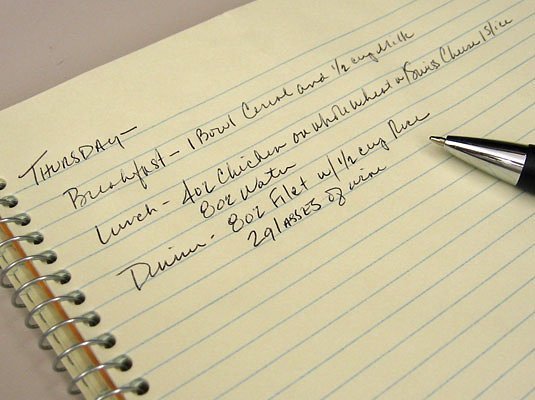 THURSDAY-
Breakfast- 1 Bowl Cereal and 1/2 cup Milk
Lunch- 4oz Chicken on whole wheat w/Swiss Cheese 1 Slice
8oz Water
Dinner- 8oz Filet w/ 1/2 cup Rice
2 glasses of wine